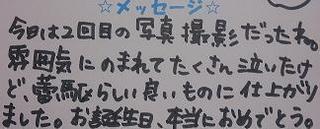 ☆メッセージ☆
今日は2回目の写真撮影だったね。
雰囲気にのまれてたくさん泣いたけ
ど、蕾馬らしい良いものに仕上がり
ました。お誕生日、本当におめでとう。